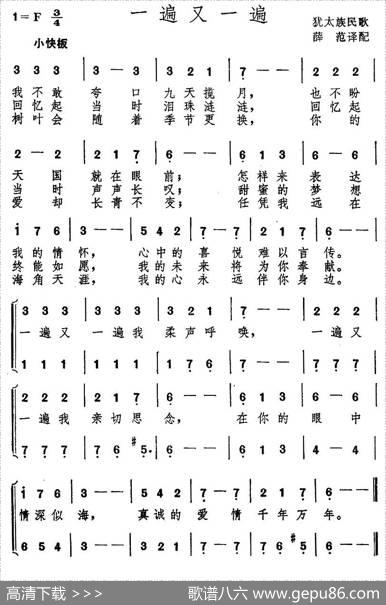 一遍又一遍
1=F 3/4
犹太族民歌
薛 范译配
小快板
3 3 3 | 3 — 3 | 3 2 1 | 7 — — | 2 2 2 |
我不敢 夸 口 九天揽 月, 也不盼
回忆起 当 时 泪珠涟 涟, 回忆起
树叶会 随 着 季节更 换, 你 的
2 — 2 | 2 1 7 | 6 — — | 6 1 3 | 6 — 6 |
天 国 就在眼 前; 怎样来 表 达
当 时 声声长 叹; 甜蜜的 梦 想
爱 却 长青不 变; 任凭我 远 在
i 7 6 | 3 — — | 5 4 2 | 7 — 7 | 2 1 7 | 6 — —
我的情 怀, 心中的 喜 悦 难以言 传。
终能如 愿, 我的未 来 将 为你奉 献。
海角天 涯, 我的心 永 远 伴你身 边。
3 3 3 | 3 3 3 | 3 2 1 | 7 — — | 2 2 2 |
一遍又 一遍我 柔声呼 唤, 一遍又
1 1 1 | 1 1 1 | 1 7 6 | 5 — — | 7 7 7 |
2 2 2 | 2 1 7 | 6 — — | 6 1 3 | 6 — 6 |
一遍我 亲切思 念, 在你的 眼 中
7 7 7 | 7 6 #5. | 6 — — | 6 1 3 | 4 — 4 |
i 7 6 | 3 — — | 5 4 2 | 7 — 7 | 2 1 7 | 6 — —
情深似 海, 真诚的 爱 情 千年万 年。
6 5 4 | 3 — — | 3 2 1 | 7 — 7 | 7 6 #5 | 6 — —
高清下载 >>> 歌谱八六 www.gepu86.com